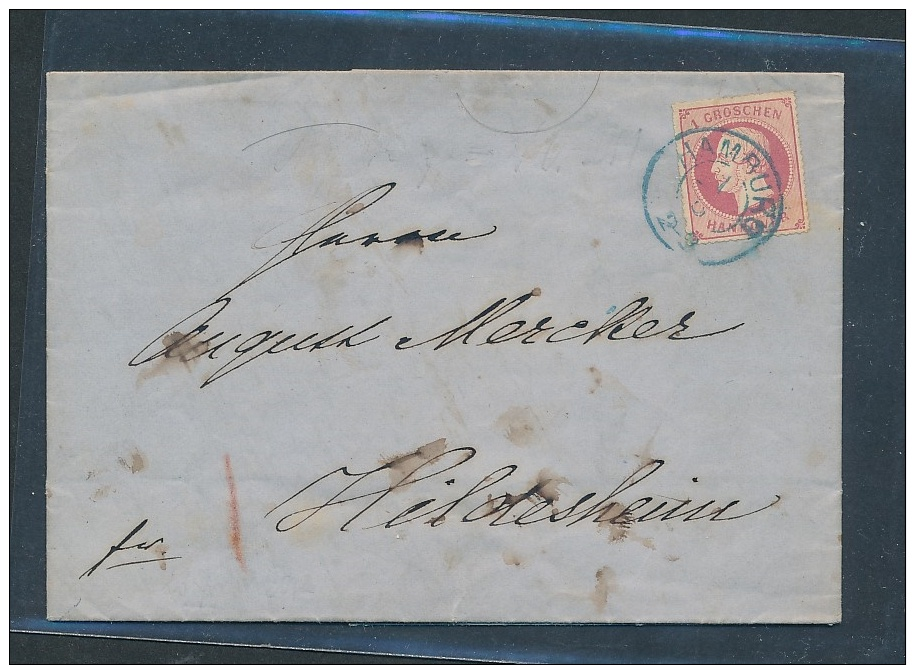 1 GROSCHEN
HAMBURG
HANNOVER
Herrn
August Mercker
Hildesheim
fr.